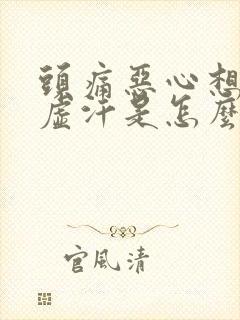 頭痛惡心想
虛汗是怎麼
官風清